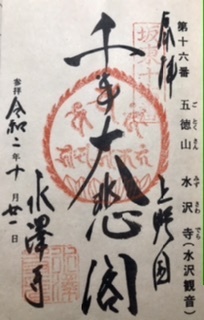 第十六番 五徳山 水沢寺(水沢観音)
ごとくさん みずさわでら
奉拝
坂東十六番
上野国
千手大悲閣
水澤寺
参拝 令和二年十月廿一日